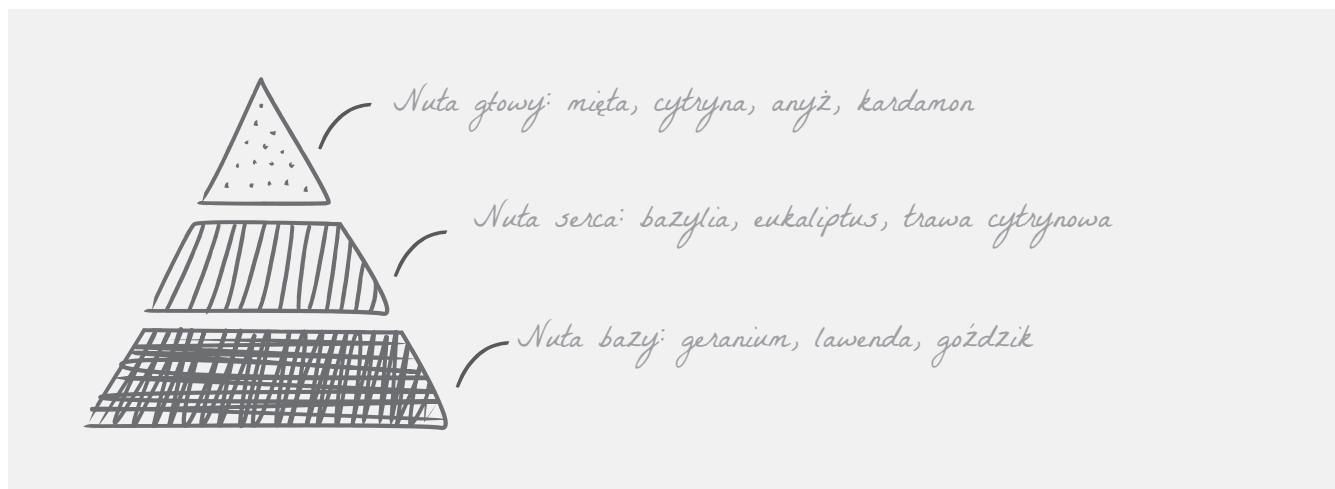 Nuta głowy: mięta, cytryna, anyż, kardamon
Nuta serca: bazylia, eukaliptus, trawa cytrynowa
Nuta bazy: geranium, lawenda, goździk